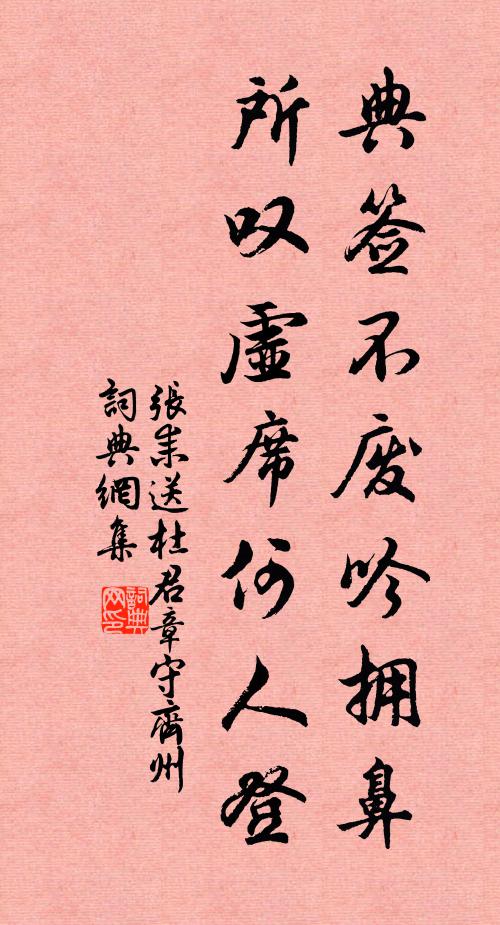 典签不废吟拥鼻
所叹虚席何人登
張耒送杜君章守齊州
詞典網集
詞典网印